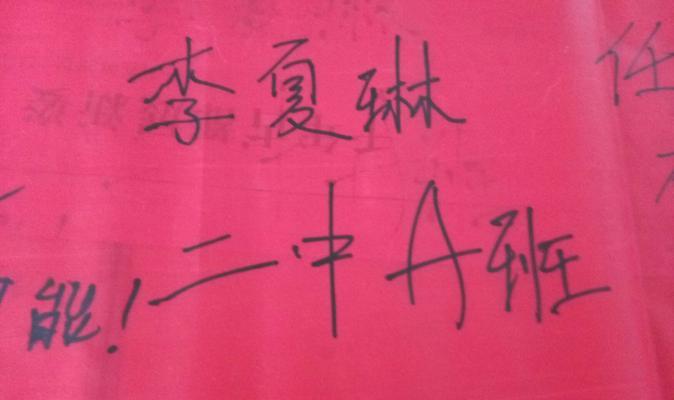 李夏琳
任
二中A班
能!